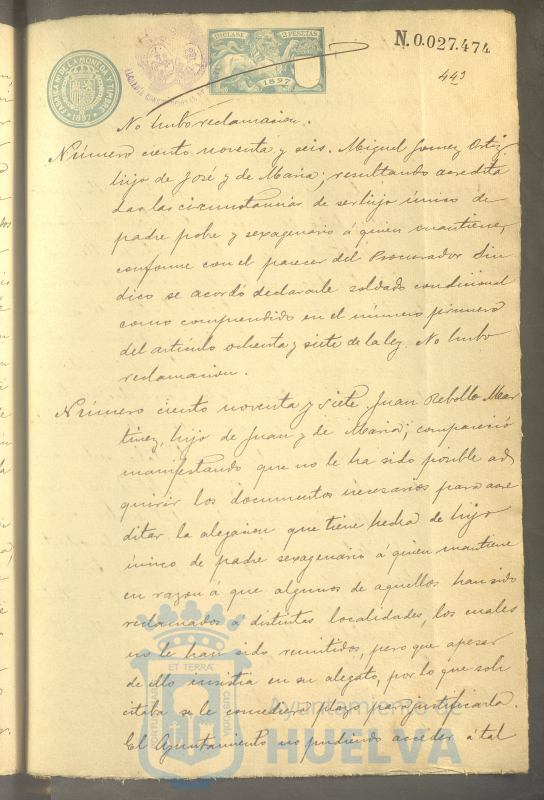 N. 0.027.474
11ª CLASE 2 PESETAS
1897
FÁBRICA NAL DE LA MONEDA Y TIMBRE
1897
443
No hubo reclamacion.
Número ciento noventa y seis. Miguel Gomez Ortiz
hijo de José y de Maria; resultando acredita
das las circunstancias de ser hijo único de
padre pobre y sexagenario á quien mantiene,
conforme con el parecer del Procurador Sin
dico se acordó declararle soldado condicional
como comprendido en el número primero
del artículo ochenta y siete de la ley. No hubo
reclamacion.
Número ciento noventa y siete. Juan Rebollo Mar
tinez, hijo de Juan y de Maria; compareció
manifestando que no le ha sido posible ad
quirir los documentos necesarios para acre
ditar la alegacion que tiene hecha de hijo
único de padre sexagenario á quien mantiene
en razon á que algunos de aquellos han sido
reclamados á distintas localidades, los cuales
no le han sido remitidos, pero que apesar
de ello insistia en su alegato, por lo que soli
citaba se le concediera plazo para justificarla.
El Ayuntamiento no pudiendo acceder á tal
ET TERRÆ
Ayuntamiento de
HUELVA